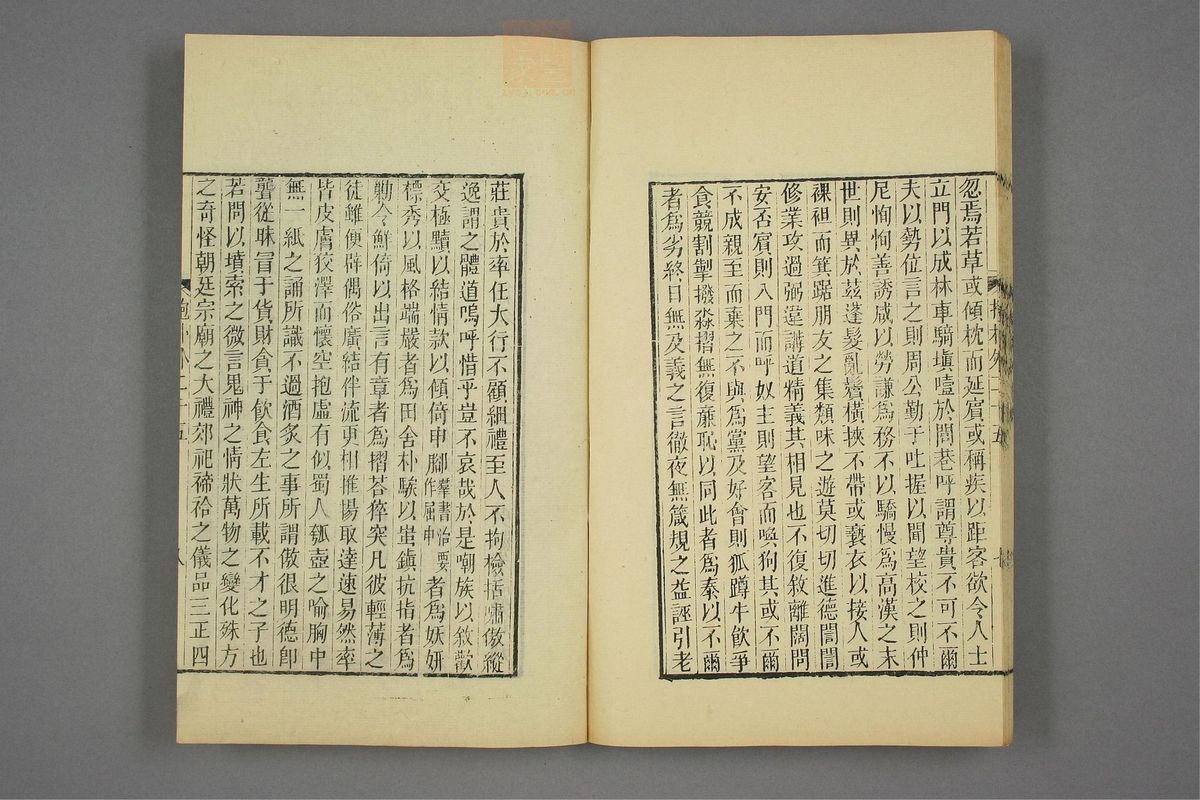 忽焉若草或傾枕而延賓或稱疾以距客欲令人士
立門以成林車騎塡噎於閭巷呼謂尊貴不可不爾
夫以勢位言之則周公勤于吐握以聞望校之則仲
尼恂恂善誘咸以勞謙爲務不以驕慢爲高漢之末
世則異於茲蓬髮亂鬢橫挾不帶或褻衣以接人或
裸袒而箕踞朋友之集類味之遊莫切切進德誾誾
修業攻過弼違講道精義其相見也不復敘離闊問
安否賓則入門而呼奴主則望客而喚狗其或不爾
不成親至而棄之不與爲黨及好會則狐蹲牛飮爭
食競割掣撥淼摺無復廉恥以同此者爲泰以不爾
者爲劣終日無及義之言徹夜無箴規之益誣引老
莊貴於率任大行不顧細禮至人不拘檢括嘯傲縱
逸謂之體道嗚呼惜乎豈不哀哉於是嘲族以敘歡
交極黷以結情款以傾倚申腳羣書治要作屈申者爲妖妍
標秀以風格端嚴者爲田舍朴騃以蚩鎮抗指者爲
勦令鮮倚以出言有章者爲摺荅猝突凡彼輕薄之
徒雖便辟偶俗廣結伴流更相推揚取達速易然率
皆皮膚狡澤而懷空抱虛有似蜀人瓠壺之喻胸中
無一紙之誦所識不過酒炙之事所謂傲很明德卽
聾從昧冒于貨財貪于飮食左生所載不才之子也
若問以墳索之微言鬼神之情狀萬物之變化殊方
之奇怪朝廷宗廟之大禮郊祀禘祫之儀品三正四
抱朴外二十五
八